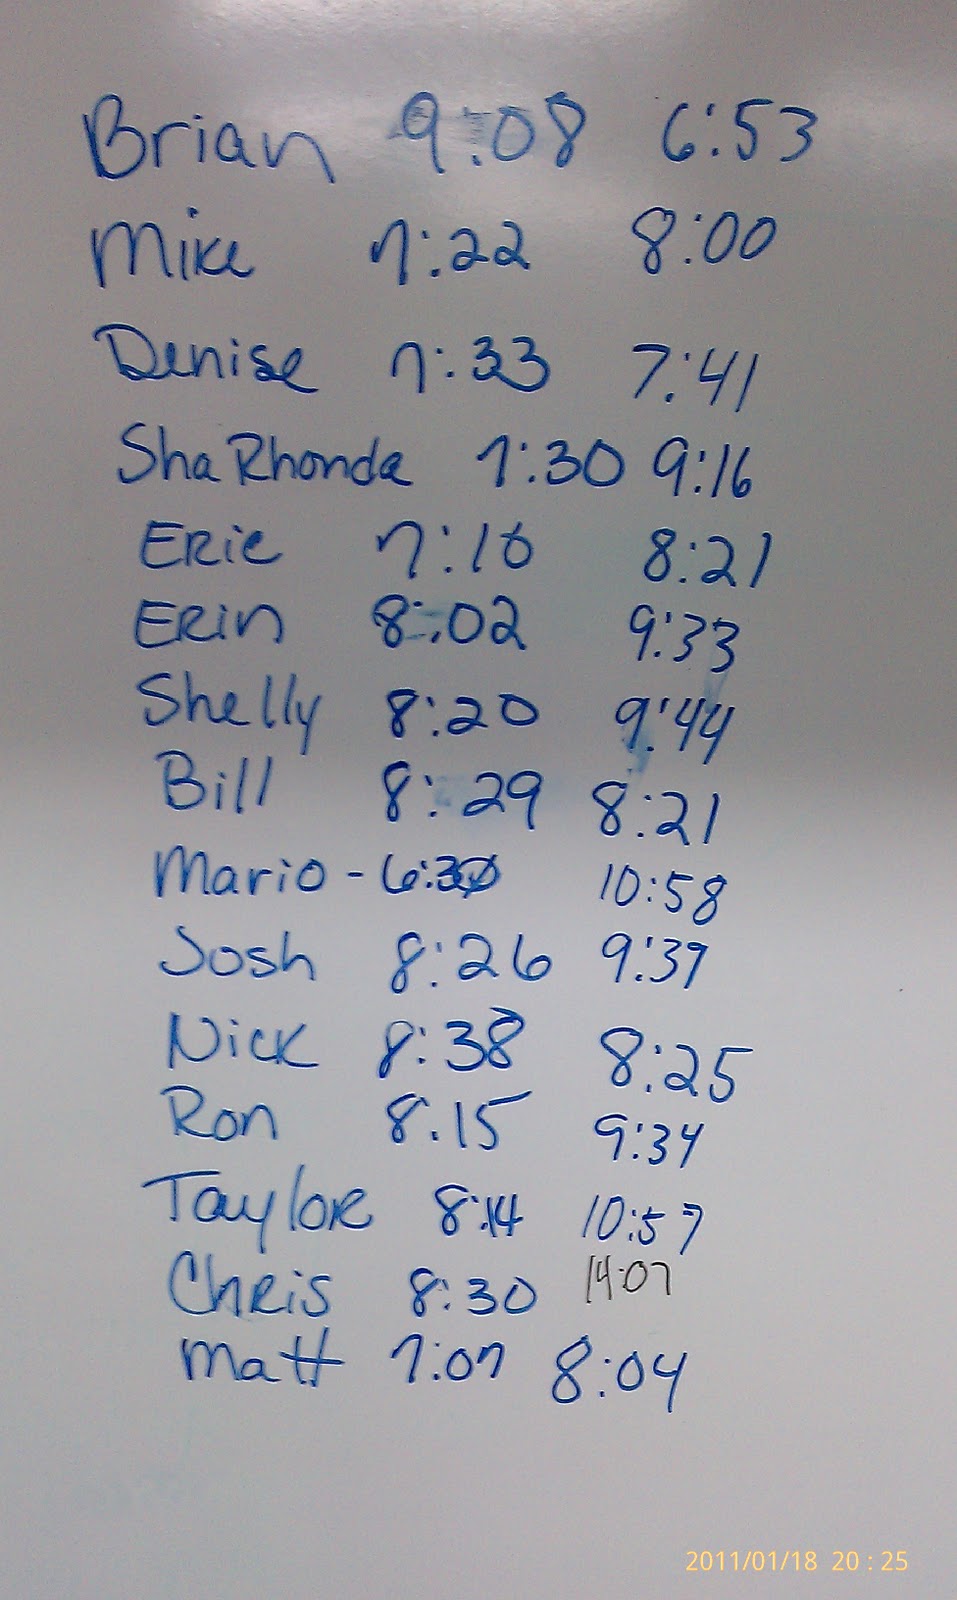 Brian 9:08 6:53
Mike 7:22 8:00
Denise 7:33 7:41
ShaRhonda 7:30 9:16
Eric 7:10 8:21
Erin 8:02 9:33
Shelly 8:20 9:44
Bill 8:29 8:21
Mario - 6:30 10:58
Josh 8:26 9:39
Nick 8:38 8:25
Ron 8:15 9:34
Taylor 8:14 10:57
Chris 8:30 14:07
Matt 7:07 8:04
2011/01/18 20:25